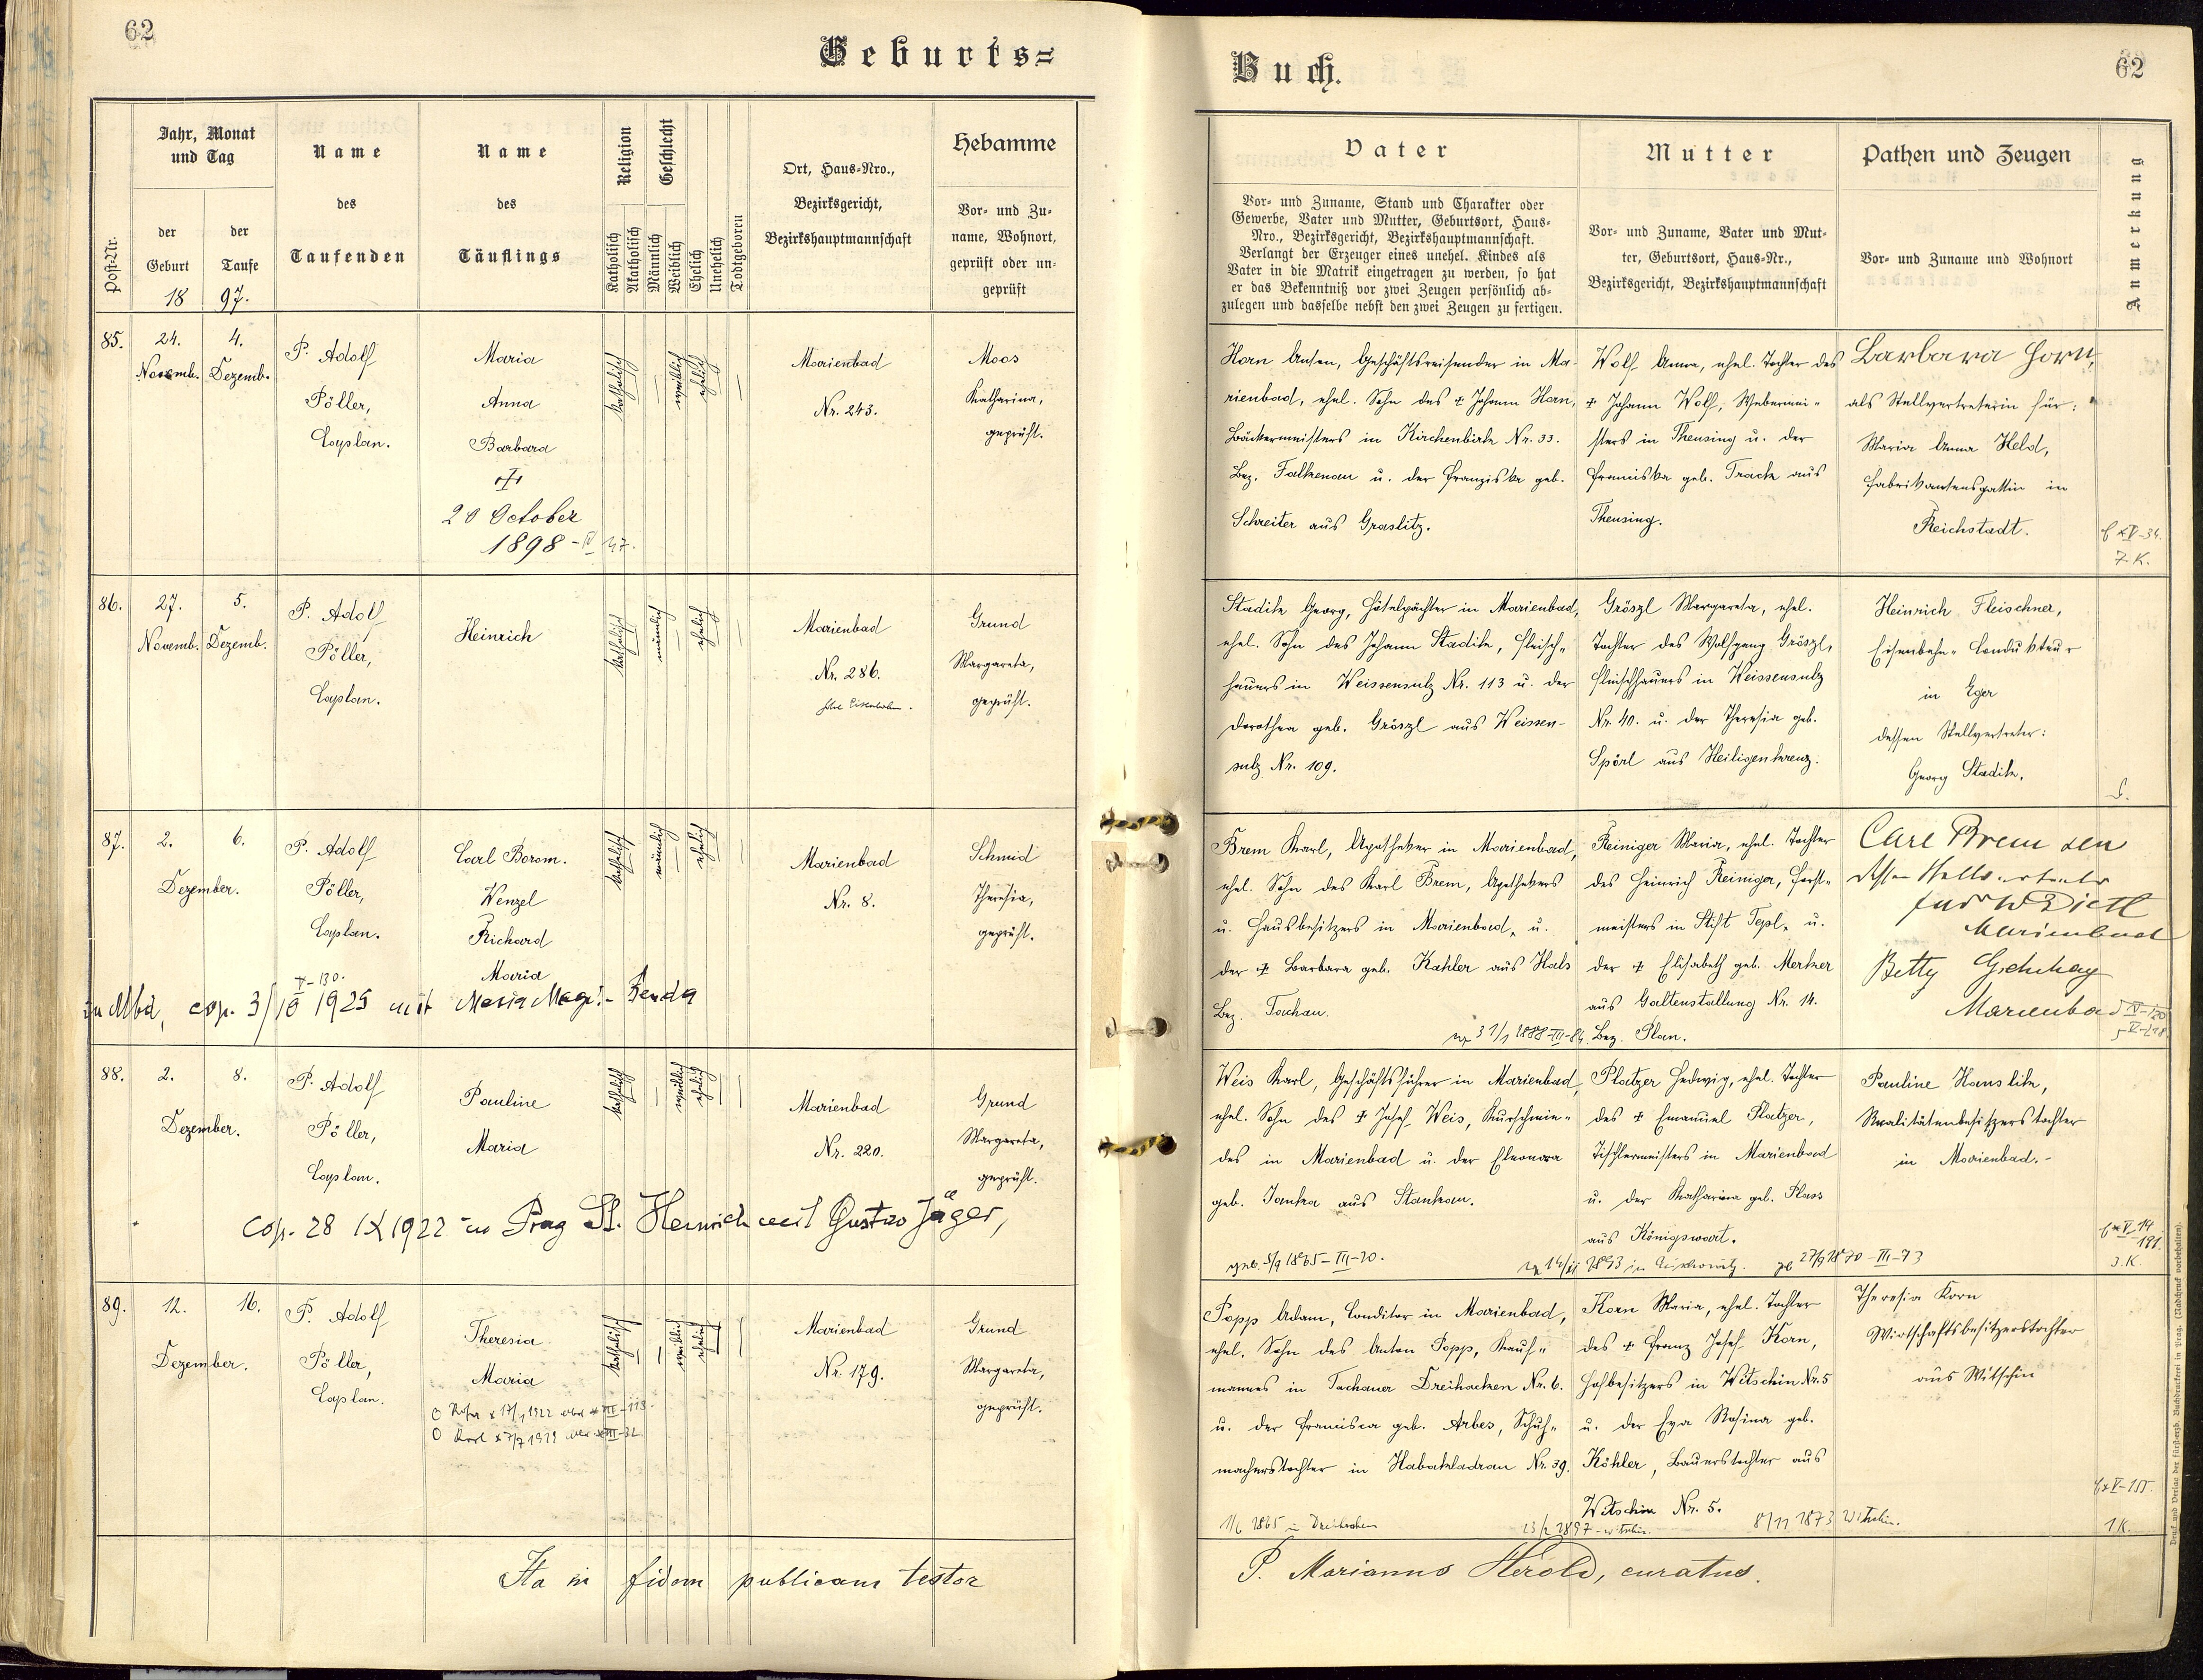 62
Geburts=
Jahr, Monat
und Tag
Name
Name
Religion
Geschlecht
Hebamme
Ort, Haus=Nro.,
des
des
Bezirksgericht,
Vor= und Zu=
Post=Nr.
der
der
Taufenden
Täuflings
Katholisch
Akatholisch
Männlich
Weiblich
Ehelich
Unehelich
Todtgeboren
Bezirkshauptmannschaft
name, Wohnort,
Geburt
Taufe
geprüft oder un=
geprüft
18
97.
85.
24.
4.
P. Adolf
Maria
katholisch
weiblich
ehelich
Marienbad
Moos
Novemb.
Dezemb.
Pöller,
Anna
Nr. 243.
Katharina,
Caplan.
Barbara
geprüft.
20 October
1898 - IV 47.
86.
27.
5.
P. Adolf
Heinrich
katholisch
männlich
ehelich
Marienbad
Grund
Novemb.
Dezemb.
Pöller,
Nr. 286.
Margareta,
Caplan.
geprüft.
87.
2.
6.
P. Adolf
Carl Borom.
katholisch
männlich
ehelich
Marienbad
Schmid
Dezember.
Pöller,
Wenzel
Nr. 8.
Theresia,
Caplan.
Richard
geprüft.
V-130.
Maria
in Mbd, cop. 3/10 1925 mit Maria Magd. Benda
88.
2.
8.
P. Adolf
Pauline
katholisch
weiblich
ehelich
Marienbad
Grund
Dezember.
Pöller,
Maria
Nr. 220.
Margareta,
Caplan.
geprüft.
cop. 28 IX 1922 in Prag St. Heinrich mit Gustav Jäger,
89.
12.
16.
P. Adolf
Theresia
katholisch
weiblich
ehelich
Marienbad
Grund
Dezember.
Pöller,
Maria
Nr. 179.
Margareta,
Caplan.
geprüft.
Ita in fidem publicam testor
Buch.
62
Vater
Mutter
Pathen und Zeugen
Anmerkung
Vor= und Zuname, Stand und Charakter oder
Gewerbe, Vater und Mutter, Geburtsort, Haus=
Nro., Bezirksgericht, Bezirkshauptmannschaft.
Verlangt der Erzeuger eines unehel. Kindes als
Vater in die Matrik eingetragen zu werden, so hat
er das Bekenntniß vor zwei Zeugen persönlich ab=
zulegen und dasselbe nebst den zwei Zeugen zu fertigen.
Vor= und Zuname, Vater und Mut=
ter, Geburtsort, Haus=Nr.,
Bezirksgericht, Bezirkshauptmannschaft
Vor= und Zuname und Wohnort
Horn Anton, Geschäftsreisender in Ma-
rienbad, ehel. Sohn des + Johann Horn,
Bäckermeisters in Kirchenbirk Nr. 33.
Bez. Falkenau u. der Franziska geb.
Schreiter aus Graslitz.
Wolf Anna, ehel. Tochter des
+ Johann Wolf, Webermei=
sters in Theusing u. der
Franziska geb. Track aus
Theusing.
Barbara Horn,
als Stellvertreterin für:
Maria Anna Held,
Fabrikantensgattin in
Reichstadt.
7. K.
Stadik Georg, Hôtelpächter in Marienbad,
ehel. Sohn des Johann Stadik, Fleisch=
hauers in Weissensulz Nr. 113 u. der
Dorothea geb. Gröszl aus Weissen-
sulz Nr. 109.
Gröszl Margareta, ehel.
Tochter des Wolfgang Gröszl,
Fleischhauers in Weissensulz
Nr. 40. u. der Theresia geb.
Spörl aus Heiligenkreuz.
Heinrich Fleischner,
Eisenbahn=Condukteur
in Eger
dessen Stellvertreter:
Georg Stadik.
Brem Karl, Apotheker in Marienbad,
ehel. Sohn des Karl Brem, Apothekers
u. Hausbesitzers in Marienbad, u.
der + Barbara geb. Kahler aus Hals
Bez. Tachau.
Reiniger Maria, ehel. Tochter
des Heinrich Reiniger, Forst=
meisters in Stift Tepl, u.
der + Elisabeth geb. Merker
aus Galtenstallung Nr. 14.
Bez. Plan.
Carl Brem sen
dessen Stellvertreter
Marienbad
Betty
Marienbad
Weis Karl, Geschäftsführer in Marienbad,
ehel. Sohn des + Josef Weis, Kurschmie=
des in Marienbad u. der Eleonora
geb. Janka aus Stankau.
Platzer Hedwig, ehel. Tochter
des + Emanuel Platzer,
Tischlermeisters in Marienbad
u. der Katharina geb. Plass
aus Königswart.
Pauline Hauslik,
Realitätenbesitzerstochter
in Marienbad.
3. K.
Popp Adam, Conditor in Marienbad,
ehel. Sohn des Anton Popp, Kauf=
mannes in Tachauer Dreihacken Nr. 6.
u. der Francisca geb. Arbes, Schuh=
macherstochter in Habakladrau Nr. 39.
1/6 1865 in Dreihacken
Korn Maria, ehel. Tochter
des + Franz Josef Korn,
Hofbesitzers in Witschin Nr. 5
u. der Eva Rosina geb.
Köhler, Bauerstochter aus
Witschin Nr. 5.
8/11 1873 Witschin.
Theresia Korn
Wirtschaftsbesitzerstochter
aus Witschin
1 K.
P. Marianus Herold, curatus.
Druck und Verlag der fürsterzb. Buchdruckerei in Prag. (Nachdruck vorbehalten).